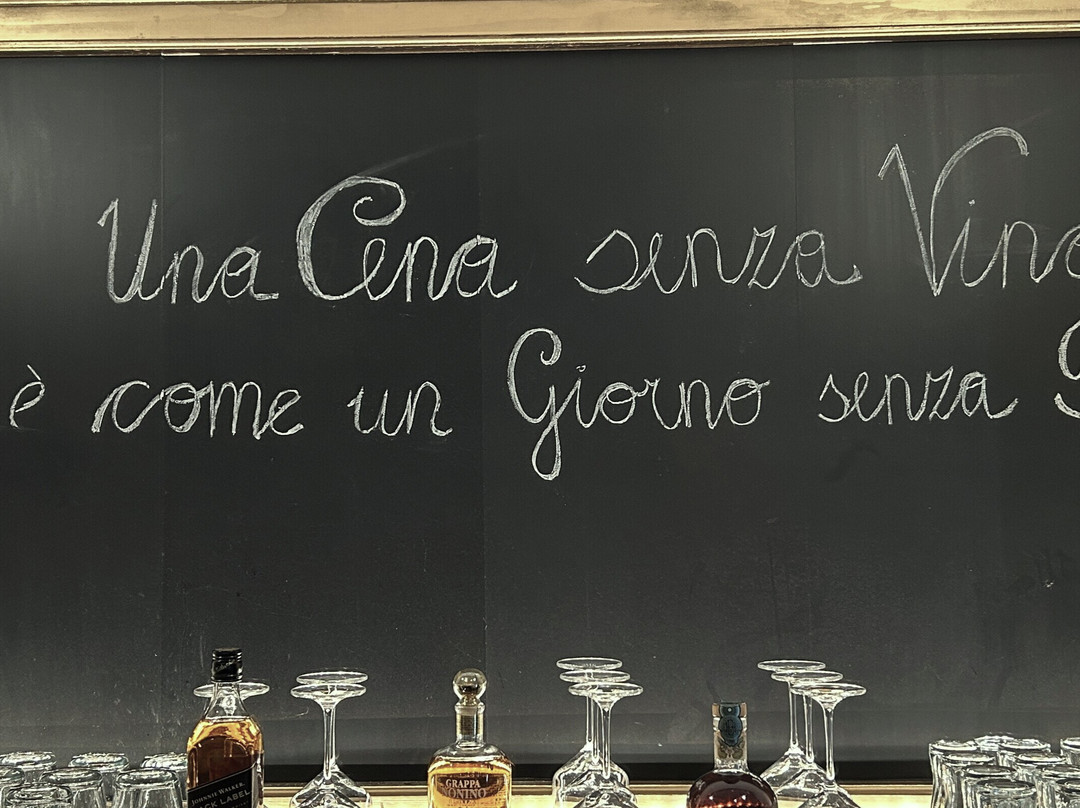 Una Cena senza Vino
è come un Giorno senza
JOHNNIE WALKER
BLACK LABEL
GRAPPA